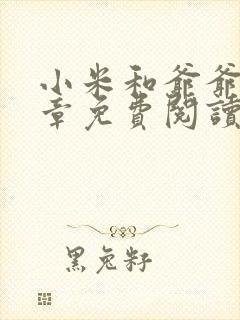 小米和爺爺
章免費閱讀
黑兔籽